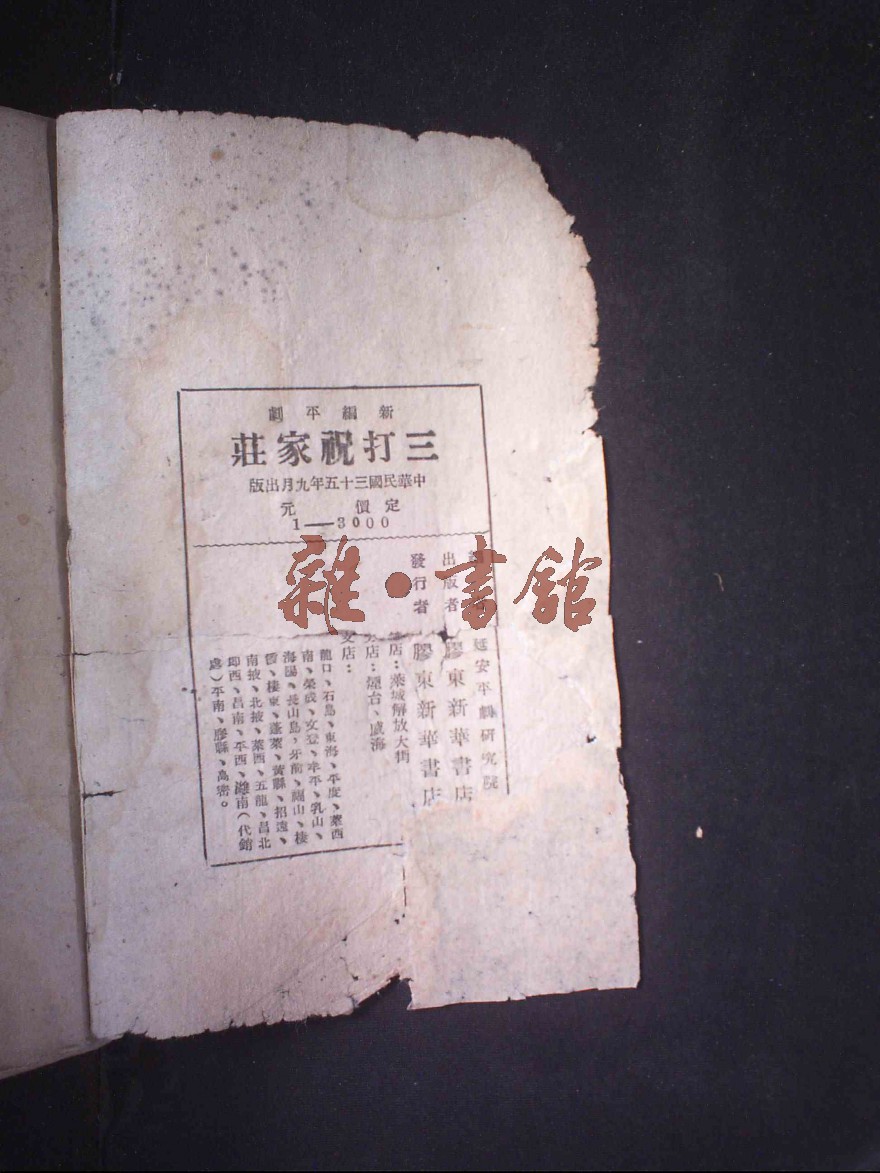 新編平劇
三打祝家莊
中華民國三十五年九月出版
定價 元
1—3000
延安平劇研究院
出版者 膠東新華書店
發行者 膠東新華書店
店：萊城解放大街
店：煙台、威海
支店：
龍口、石島、東海、平度、萊西
南、榮成、文登、牟平、乳山、
海陽、長山島、牙前、福山、棲
霞、棲東、蓬萊、黃縣、招遠、
南掖、北掖、萊西、五龍、昌北
即西、昌南、平西、濰南（代銷
處）平南、膠縣、高密。
雜·書館